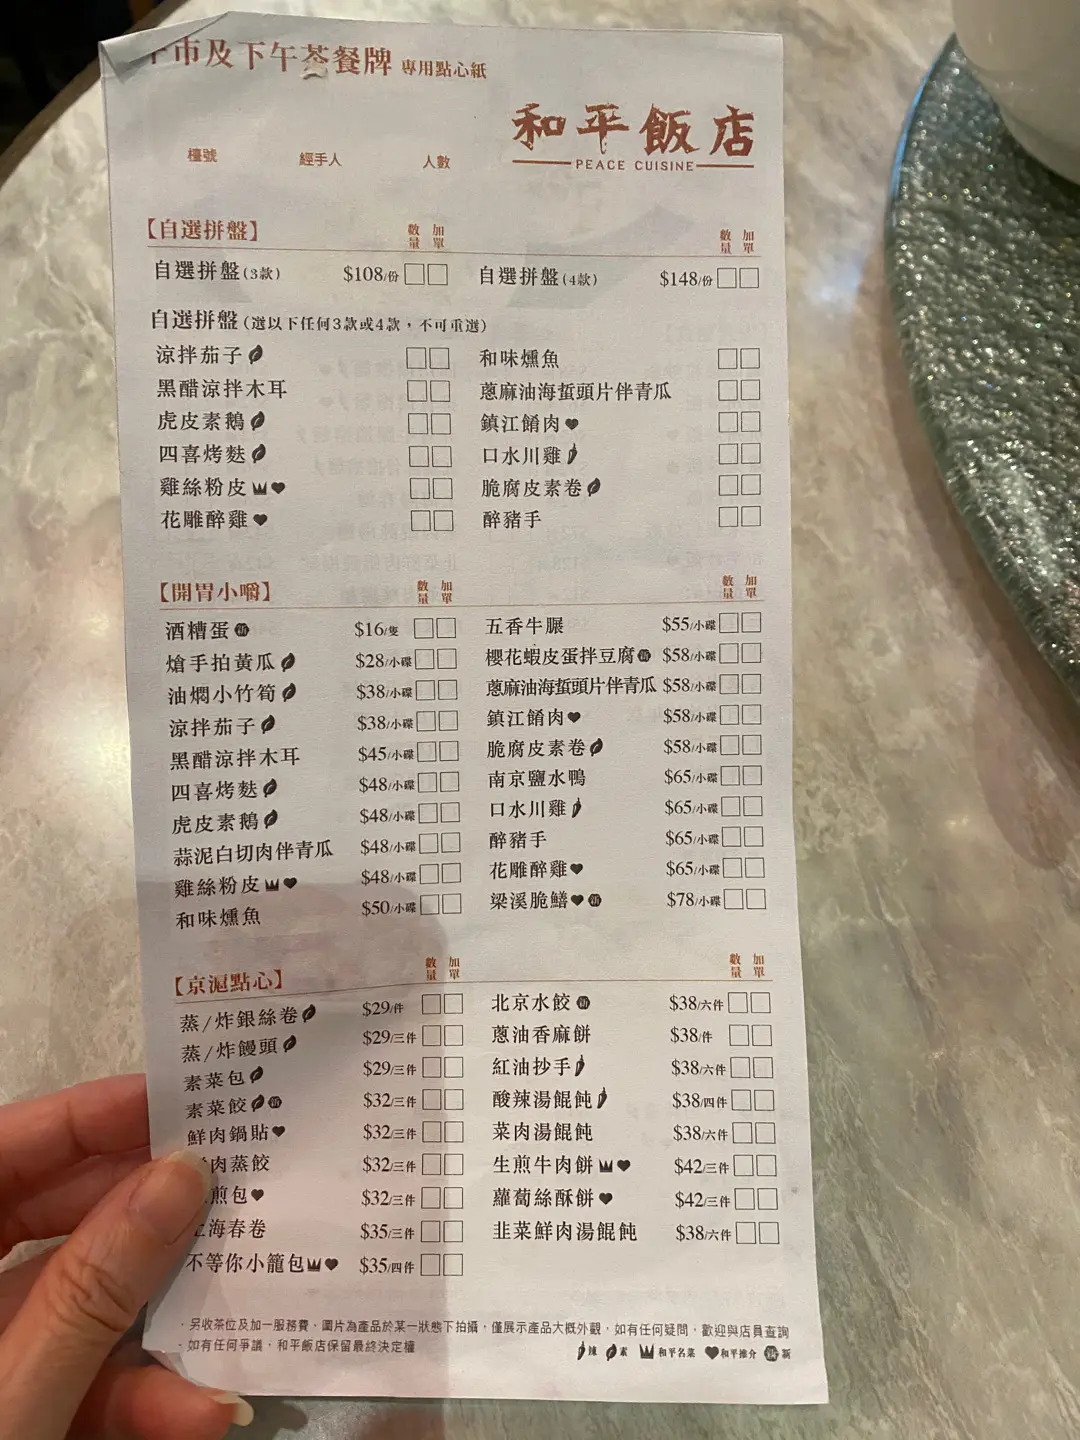 市及下午茶餐牌 專用點心紙
和平飯店
PEACE CUISINE
檯號 經手人 人數
【自選拼盤】 數量 加單 數量 加單
自選拼盤(3款) $108/份 自選拼盤(4款) $148/份
自選拼盤(選以下任何3款或4款，不可重選)
涼拌茄子 和味燻魚
黑醋涼拌木耳 蔥麻油海蜇頭片伴青瓜
虎皮素鵝 鎮江餚肉
四喜烤麩 口水川雞
雞絲粉皮 脆腐皮素卷
花雕醉雞 醉豬手
【開胃小嚼】 數量 加單 數量 加單
酒糟蛋 新 $16/隻 五香牛𦟌 $55/小碟
熗手拍黃瓜 $28/小碟 櫻花蝦皮蛋拌豆腐 新 $58/小碟
油燜小竹筍 $38/小碟 蔥麻油海蜇頭片伴青瓜 $58/小碟
涼拌茄子 $38/小碟 鎮江餚肉 $58/小碟
黑醋涼拌木耳 $45/小碟 脆腐皮素卷 $58/小碟
四喜烤麩 $48/小碟 南京鹽水鴨 $65/小碟
虎皮素鵝 $48/小碟 口水川雞 $65/小碟
蒜泥白切肉伴青瓜 $48/小碟 醉豬手 $65/小碟
雞絲粉皮 $48/小碟 花雕醉雞 $65/小碟
和味燻魚 $50/小碟 梁溪脆鱔 新 $78/小碟
【京滬點心】 數量 加單 數量 加單
蒸/炸銀絲卷 $29/件 北京水餃 新 $38/六件
蒸/炸饅頭 $29/三件 蔥油香麻餅 $38/件
素菜包 $29/三件 紅油抄手 $38/六件
素菜餃 新 $32/三件 酸辣湯餛飩 $38/四件
鮮肉鍋貼 $32/三件 菜肉湯餛飩 $38/六件
肉蒸餃 $32/三件 生煎牛肉餅 $42/三件
煎包 $32/三件 蘿蔔絲酥餅 $42/三件
上海春卷 $35/三件 韭菜鮮肉湯餛飩 $38/六件
不等你小籠包 $35/四件
·另收茶位及加一服務費．圖片為產品於某一狀態下拍攝，僅展示產品大概外觀，如有任何疑問，歡迎與店員查詢
·如有任何爭議，和平飯店保留最終決定權
辣 素 和平名菜 和平推介 新 新